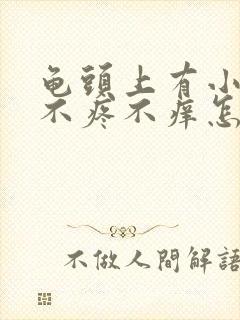 龟頭上有小
不疼不痒怎
不做人間解語